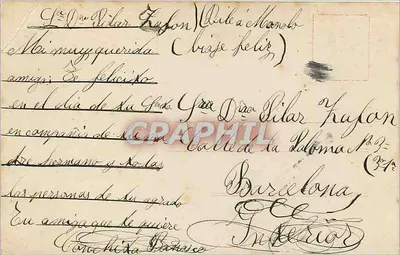 Sta Dña Pilar Zafon (Dile á Manolo
Mi muy querida (viaje feliz)
amiga; Te felicito
en el dia de tu Santo
en compañia de tu
dre hermano y todas
las personas de tu agrado
Tu amiga que te quiere
Conchita
Dña Pilar Zafon
Calle de la Paloma Nº 9
Barcelona
Interior
CPAPHIL